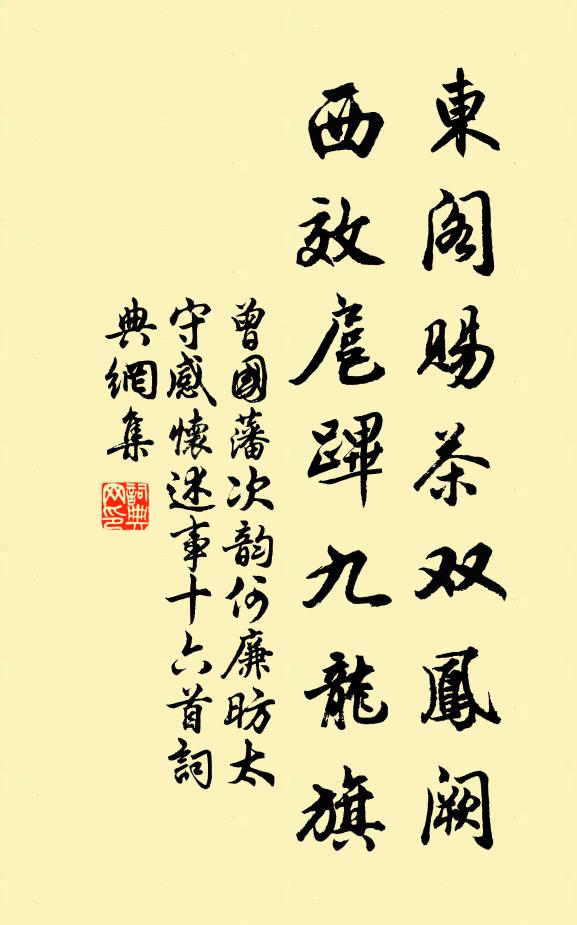 東閣賜茶双鳳闕
西效扈蹕九龍旗
曾國藩次韵何廉昉太
守感懷述事十六首詞
典網集
詞典
网印